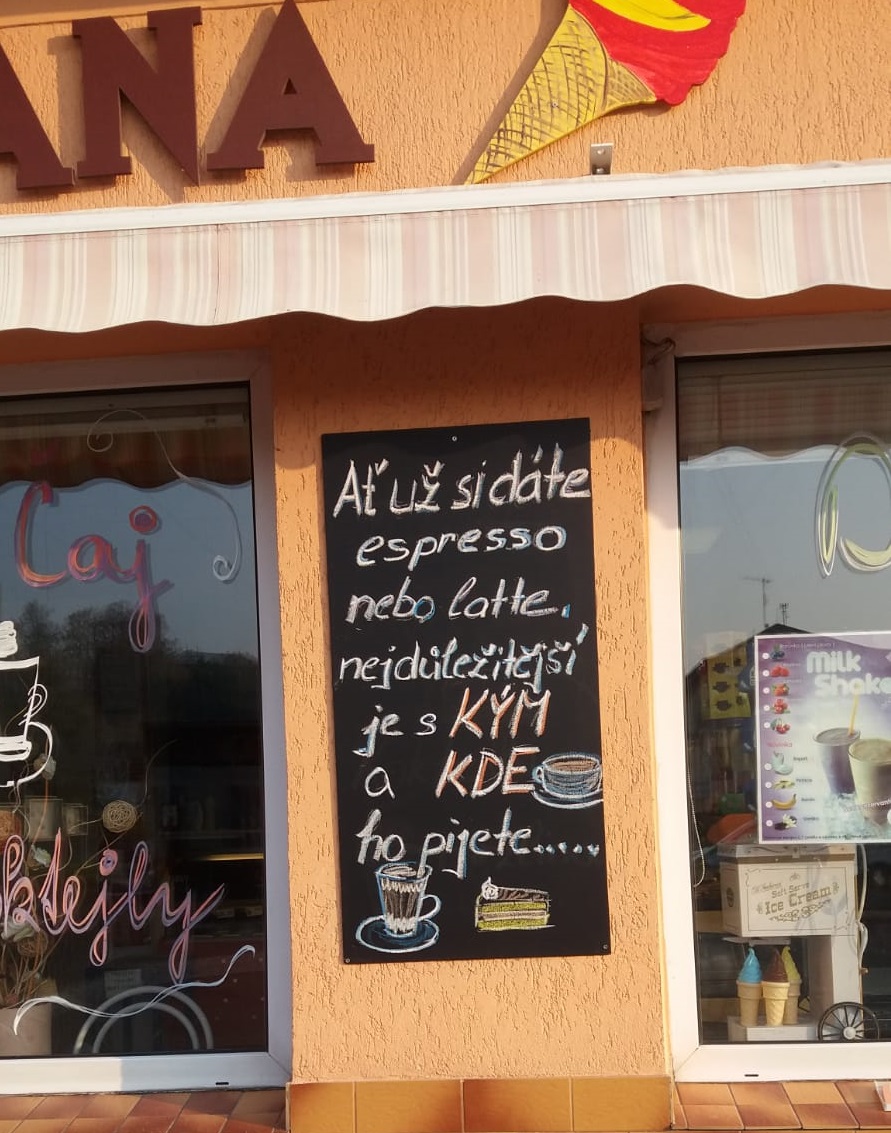 ANA
Čaj
ktejly
Ať už si dáte
espresso
nebo latte,
nejdůležitější
je s KÝM
a KDE
ho pijete.....
Milk
Shake
Soft Serve
Ice Cream